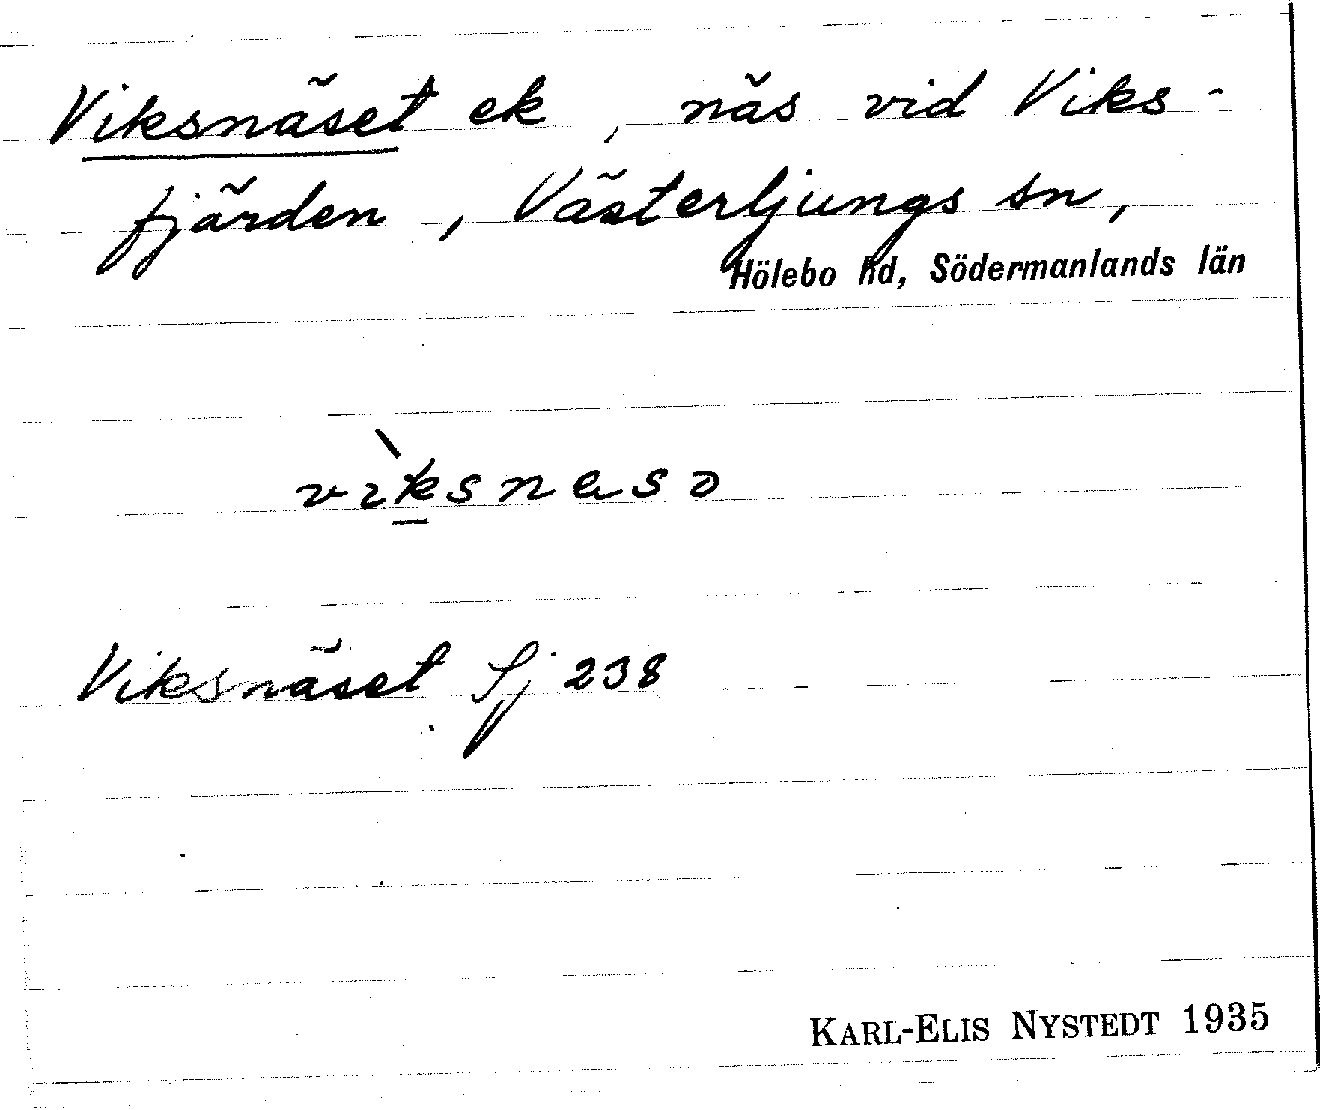 Viksnäset ek, näs vid Viks-
fjärden, Västerljungs sn,
Hölebo hd, Södermanlands län
vɩ̀ksnesə
Viksnäset Sj 238
KARL-ELIS NYSTEDT 1935